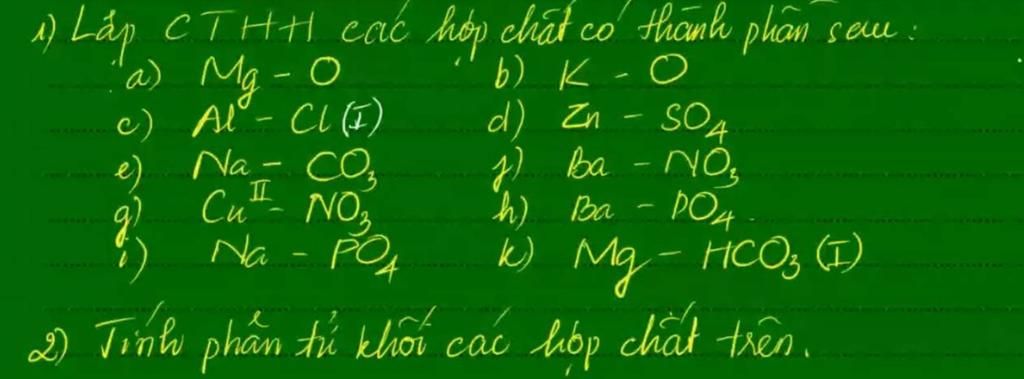 1) Lập CTHH các hợp chất có thành phần sau:
a) Mg - O b) K - O
c) Al - Cl (I) d) Zn - SO₄
e) Na - CO₃ f) Ba - NO₃
g) Cu^II - NO₃ h) Ba - PO₄
i) Na - PO₄ k) Mg - HCO₃ (I)
2) Tính phân tử khối các hợp chất trên.